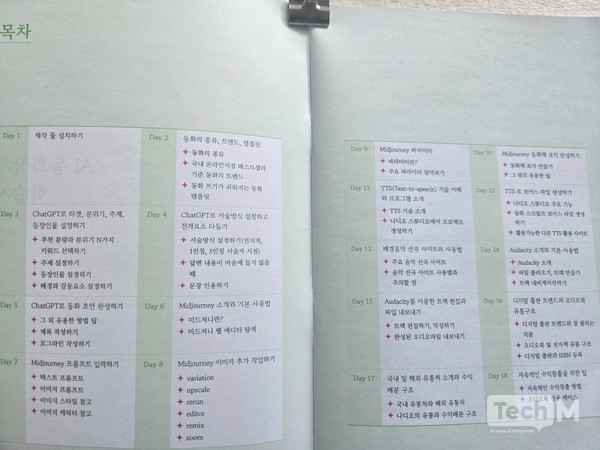 목차
Day 1
제작 툴 설치하기
Day 2
동화의 종류, 트렌드, 템플릿
동화의 종류
국내 온라인서점 베스트셀러
기준 동화의 트렌드
동화 쓰기가 쉬워지는 동화
템플릿
Day 3
ChatGPT로 타겟, 분위기, 주제,
등장인물 설정하기
추천 분량과 분위기 N가지
키워드 선택하기
주제 설정하기
등장인물 설정하기
배경과 갈등요소 설정하기
Day 4
ChatGPT로 서술방식 설정하고
전개요소 다듬기
서술방식 설정하기(전지적,
1인칭, 3인칭 서술자 시점)
답변 내용이 마음에 들지 않을
때
문장 인용하기
Day 5
ChatGPT로 동화 초안 완성하기
그 외 유용한 방법 팁
제목 작성하기
로그라인 작성하기
Day 6
Midjourney 소개와 기본 사용법
미드저니란?
미드저니 웹 에디터 탐색
Day 7
Midjourney 프롬프트 입력하기
텍스트 프롬프트
이미지 프롬프트
이미지 스타일 참고
이미지 캐릭터 참고
Day 8
Midjourney 이미지 추가 작업하기
variation
upscale
rerun
editor
remix
zoom
Day 9
Midjourney 파라미터
파라미터란?
주요 파라미터 알아보기
Day 10
Midjourney 동화책 표지 완성하기
동화책 표지 만들기
그 밖의 유용한 팁
Day 11
TTS(Text-to-speech) 기술 이해
와 프로그램 소개
TTS 기술 소개
나디오 스튜디오에서 프로젝트
생성하기
Day 12
TTS 로 보이스 파일 생성하기
나디오 스튜디오 주요 기능
동화 스크립트 보이스 파일 생성
하기
활용가능한 다른 TTS 활용 사이트
Day 13
배경음악 선곡 사이트와 사용법
주요 음악 선곡 사이트
음악 선곡 사이트 사용법과
주의할 점
Day 14
Audacity 소개와 기본 사용법
Audacity 소개
파일 불러오기, 트랙 만들기
트랙 네비게이션하기
Day 15
Audacity를 이용한 트랙 편집과
파일 내보내기
트랙 편집하기, 믹싱하기
완성된 오디오파일 내보내기
Day 16
디지털 출판 트렌드와 오디오북
유통구조
디지털 출판 트렌드와 잘 팔리는
작품
오디오북 및 전자책 유통 구조
디지털 출판과 ISBN 등록
Day 17
국내 및 해외 유통처 소개와 수익
배분 구조
국내 유통처와 해외 유통처
나디오의 유통과 수익배분 구조
Day 18
지속적인 수익창출을 위한 팁
지속적인 수익창출 방법
오디오북 성공 케이스
TechM